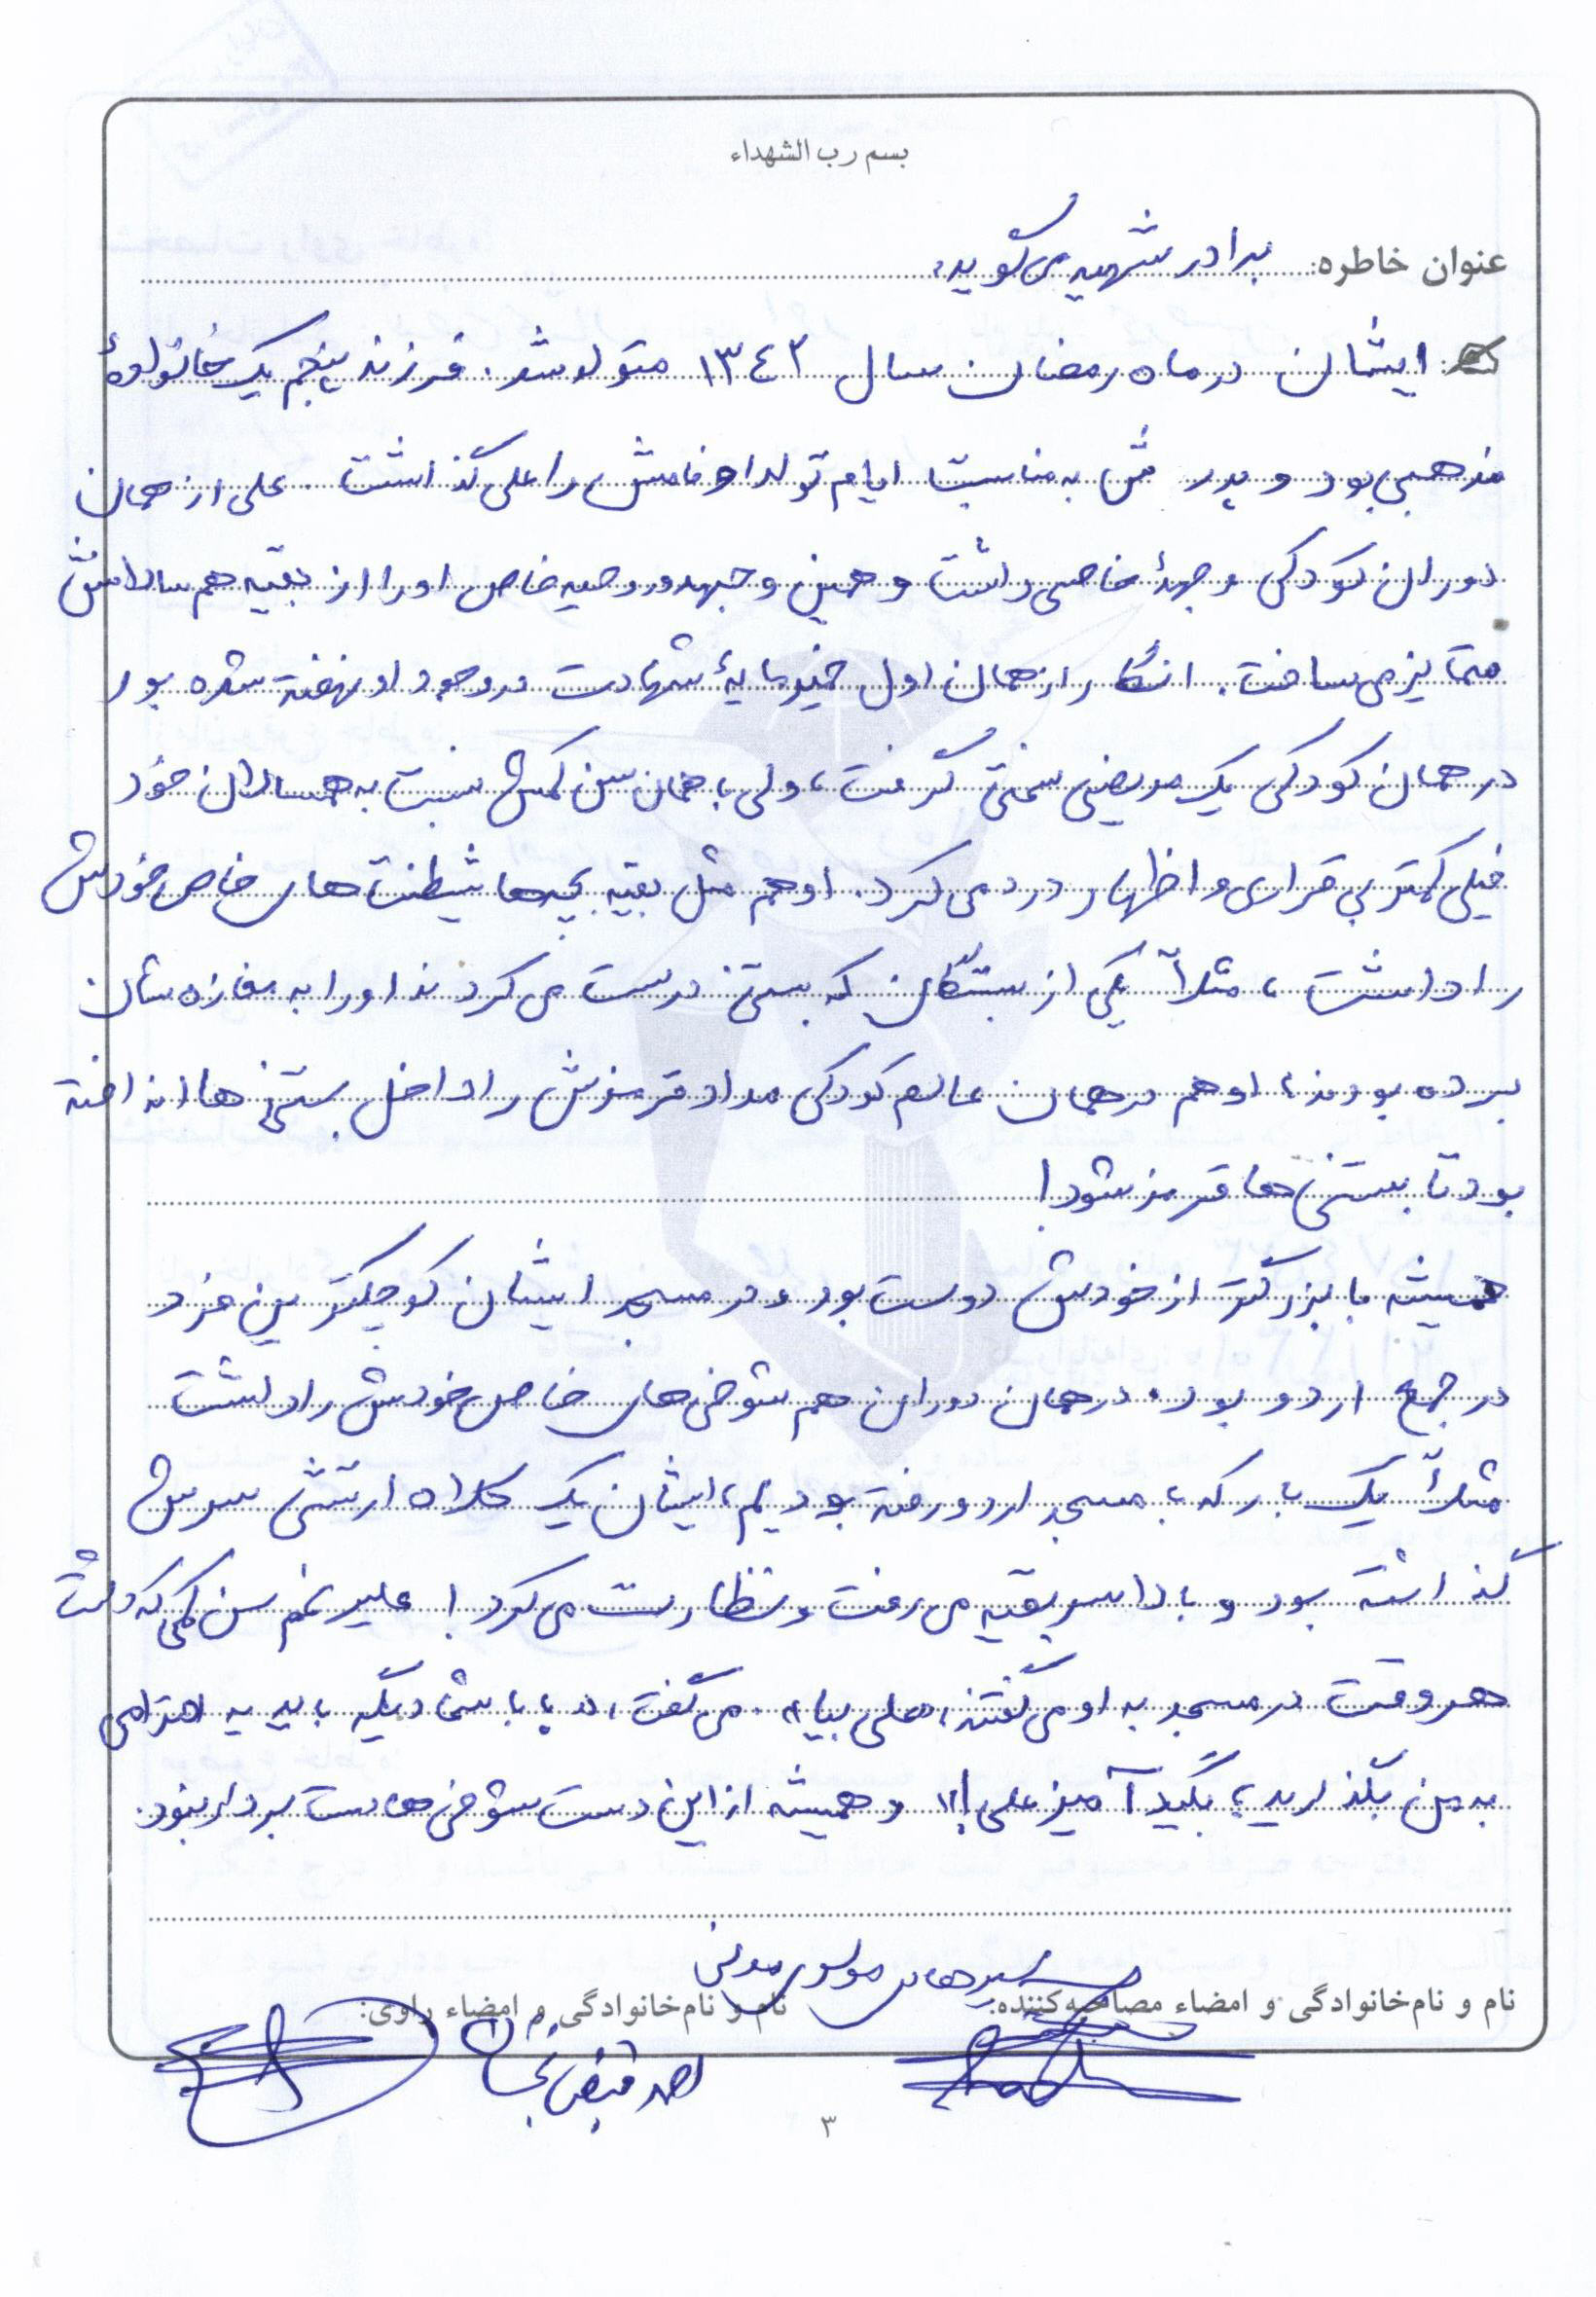 بسم رب الشهداء
عنوان خاطره: برادر شهید می‌گوید،
ایشان در ماه رمضان سال ۱۳۴۲ متولد شد. فرزند پنجم یک خانوادهٔ
مذهبی بود و پدرش به مناسبت ایام تولد او نامش را علی گذاشت. علی از همان
دوران کودکی وجههٔ خاصی داشت و همین وجهه و روحیه خاص او را از بقیه هم سالانش
متمایز می‌ساخت. انگار از همان اول خیرمایهٔ شهادت در وجود او نهفته شده بود
در همان کودکی یک مریضی سختی گرفت، ولی با همان سن کمش نسبت به همسالان خود
خیلی کمتر بی قراری و اظهار درد می کرد. او هم مثل بقیه بچه‌ها شیطنت های خاص خودش
را داشت، مثلاً یکی از بستگان که بستنی درست می کردند او را به مغازه شان
برده بودند، او هم در همان عالم کودکی مداد قرمزش را داخل بستنی ها انداخته
بود تا بستنی ها قرمز شود!
همیشه با بزرگتر از خودش دوست بود و در مسجد ایشان کوچکترین فرد
در جمع اردو بود. در همان دوران هم شوخی های خاص خودش را داشت
مثلاً یک بار که با مسجد اردو رفته بودیم، ایشان یک کلاه ارتشی سرش
گذاشته بود و بالا سر بقیه می رفت و نظارت می کرد! علیرغم سن کمی که داشت
هر وقت در مسجد به او می گفتند، «علی بیا». می گفت، «بابا شما دیگه باید یه احترامی
به من بگذارید، بگید آمیز علی!» و همیشه از این دست شوخی ها دست بردار نبود.
سید هادی موسوی مدنی
نام و نام‌خانوادگی و امضاء مصاحبه‌کننده: نام و نام‌خانوادگی و امضاء راوی:
۳